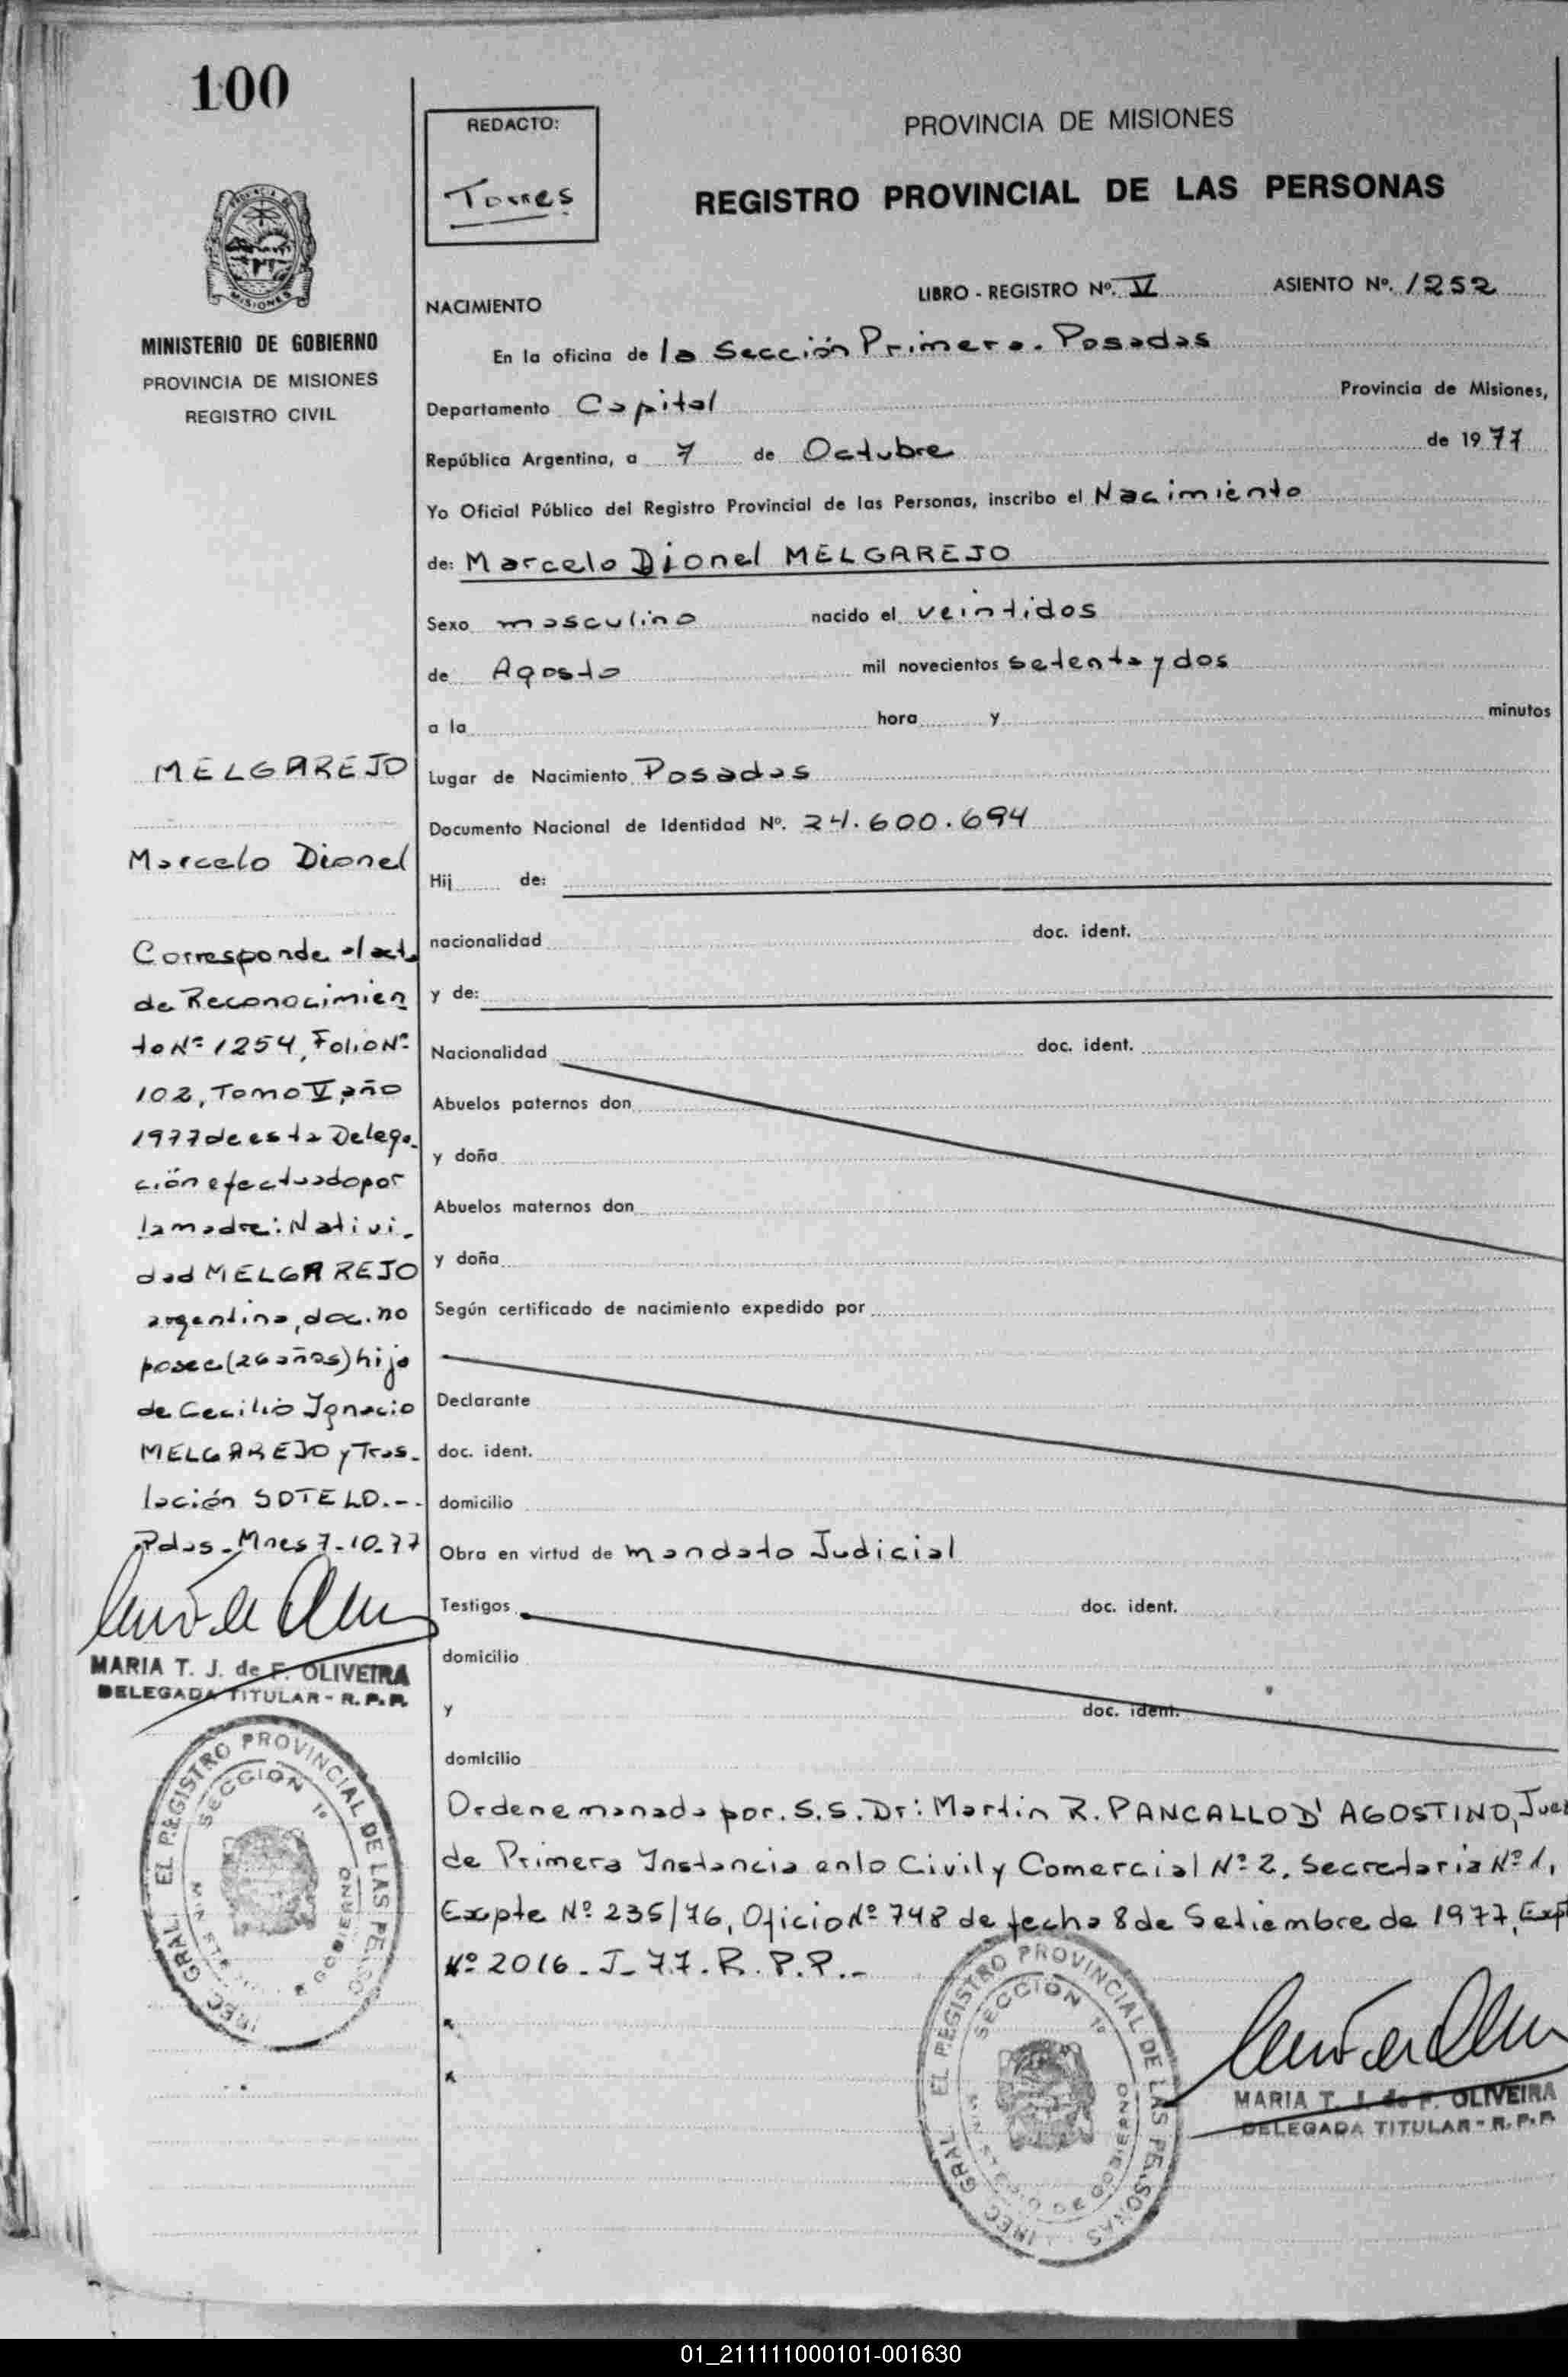 100
REDACTO:
Torres
PROVINCIA DE MISIONES
REGISTRO PROVINCIAL DE LAS PERSONAS
MISIONES
MINISTERIO DE GOBIERNO
PROVINCIA DE MISIONES
REGISTRO CIVIL
NACIMIENTO
LIBRO - REGISTRO Nº. V ASIENTO Nº. 1252
En la oficina de la Sección Primera. Posadas
Departamento Capital Provincia de Misiones,
República Argentina, a 7 de Octubre de 1977
Yo Oficial Público del Registro Provincial de las Personas, inscribo el Nacimiento
de: Marcelo Dionel MELGAREJO
Sexo masculino nacido el veintidos
de Agosto mil novecientos setenta y dos
a la hora y minutos
Lugar de Nacimiento Posadas
Documento Nacional de Identidad Nº. 24.600.694
Hij de:
nacionalidad doc. ident.
y de:
Nacionalidad doc. ident.
Abuelos paternos don
y doña
Abuelos maternos don
y doña
Según certificado de nacimiento expedido por
Declarante
doc. ident.
domicilio
Obra en virtud de mandato Judicial
Testigos doc. ident.
domicilio
y doc. ident.
domicilio
Orden emanada por. S.S. Dr: Martin R. PANCALLO D' AGOSTINO, Juez
de Primera Instancia en lo Civil y Comercial Nº 2, Secretaria Nº 1,
Expte Nº 235/76, Oficio Nº 748 de fecha 8 de Setiembre de 1977, Expt
Nº 2016-J-77.R.P.P.-
MELGAREJO
Marcelo Dionel
Corresponde al act.
de Reconocimien
to Nº 1254, Folio Nº
102, Tomo V, año
1977 de esta Delega.
ción efectuado por
la madre: Nativi.
dad MELGAREJO
argentina, doc. no
posee (26 años) hija
de Cecilio Ignacio
MELGAREJO y Tras.
lación SOTELO.-.
Pdas-Mnes 7-10-77
MARIA T. J. de F. OLIVEIRA
DELEGADA TITULAR - R.P.P.
EL REGISTRO PROVINCIAL DE LAS
SECCION 1º
GOBIERNO
EL REGISTRO PROVINCIAL DE LAS PERSONAS
SECCION 1º
DE GOBIERNO
MARIA T. J. de F. OLIVEIRA
DELEGADA TITULAR - R.P.P.
01_211111000101-001630